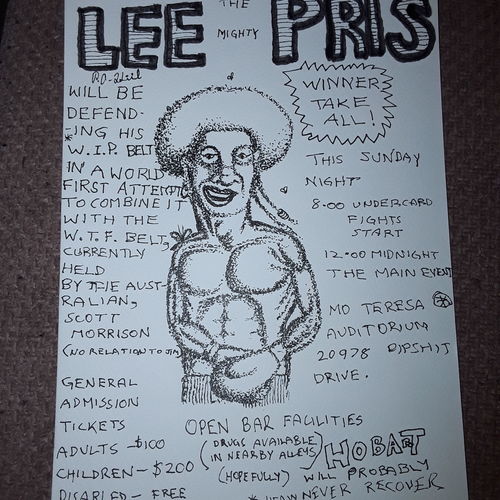 THE
MIGHTY
LEE PRIS
WILL BE
DEFEND-
-ING HIS
W.I.P. BELT
IN A WORLD
FIRST ATTEMPT
TO COMBINE IT
WITH THE
W.T.F. BELT,
CURRENTLY
HELD
BY THE AUST-
RALIAN,
SCOTT
MORRISON
(NO RELATION TO JIM
GENERAL
ADMISSION
TICKETS
ADULTS - $100
CHILDREN - $200
DISABLED - FREE
WINNER
TAKE
ALL!
THIS SUNDAY
NIGHT
8:00 UNDERCARD
FIGHTS
START
12:00 MIDNIGHT
THE MAIN EVENT
MO TERESA
AUDITORIUM
20978 DIPSHIT
DRIVE.
OPEN BAR FACILITIES
(DRUGS AVAILABLE
IN NEARBY ALLEYS)
(HOPEFULLY)
HOBART
WILL PROBABLY
NEVER RECOVER